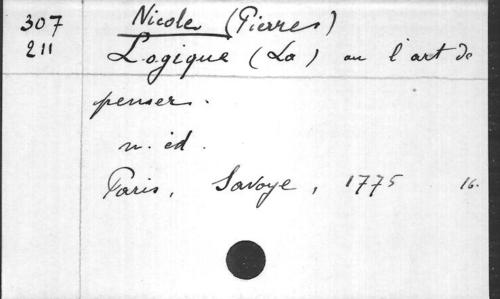 307
211
Nicole (Pierre)
Logique (La) ou l'art de
penser.
n. éd.
Paris, Savoye, 1775 16.